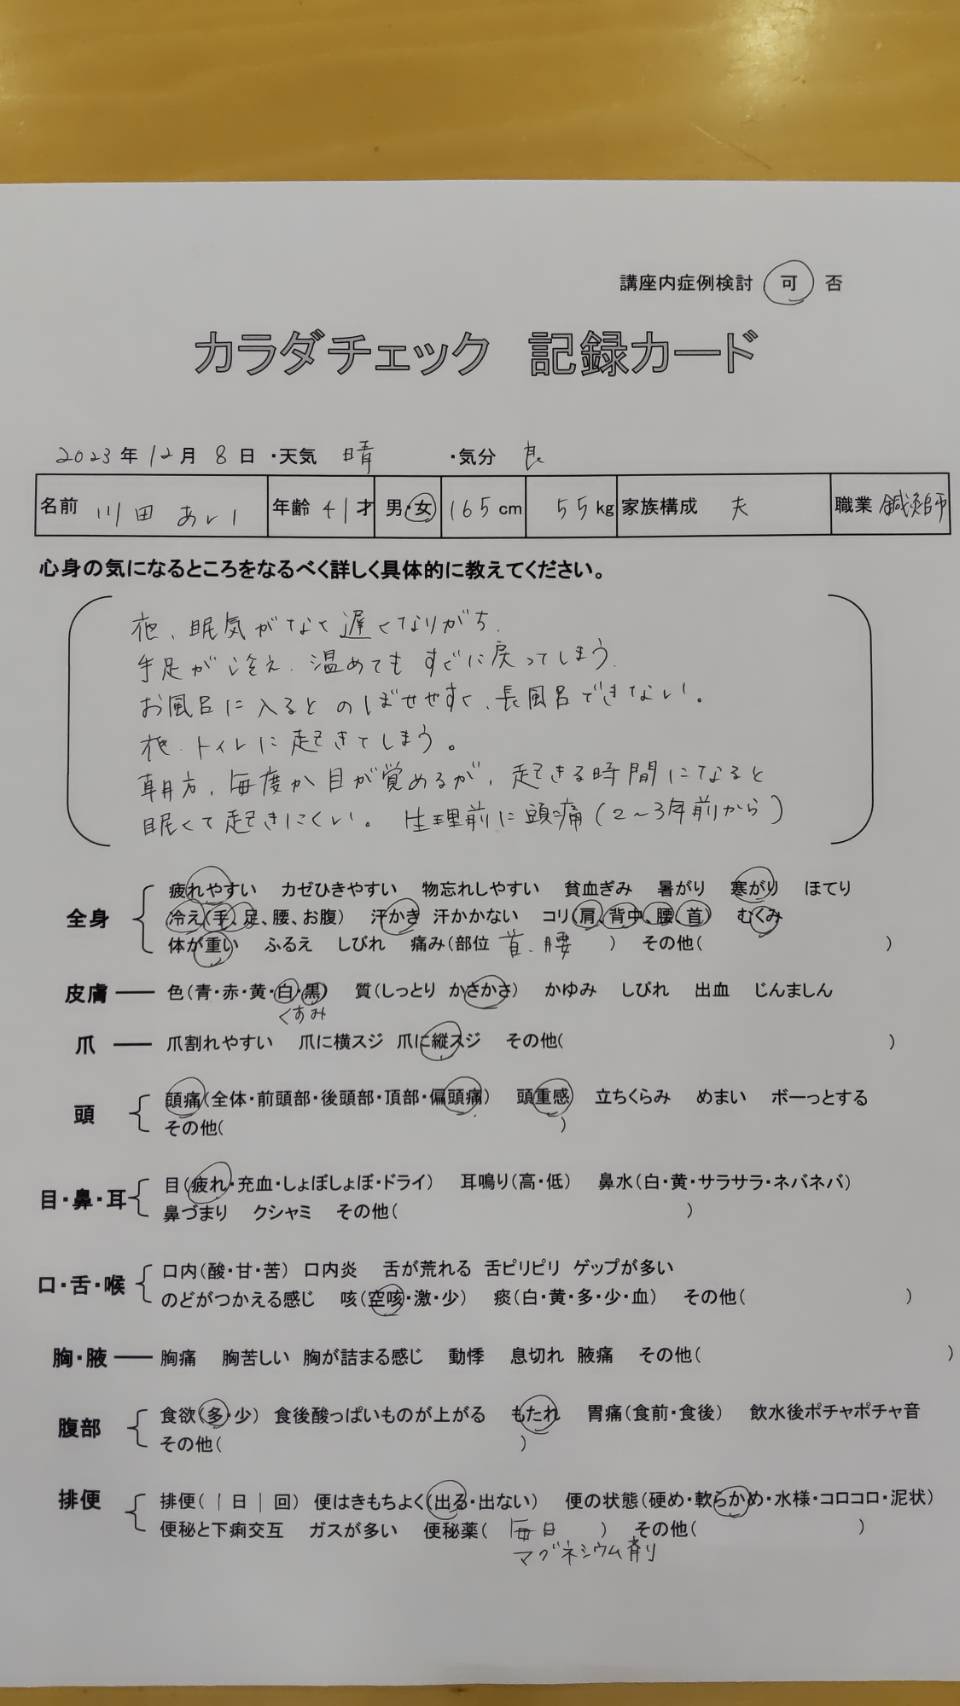 講座内症例検討 可 否
カラダチェック 記録カード
2023年12月8日 ・天気 晴 ・気分 良
名前 川田 あい 年齢 41才 男・女 165cm 55kg 家族構成 夫 職業 鍼灸師
心身の気になるところをなるべく詳しく具体的に教えてください。
夜、眠気がなく遅くなりがち、
手足が冷え、温めてもすぐに戻ってしまう、
お風呂に入るとのぼせやすく、長風呂できない。
夜、トイレに起きてしまう。
朝方、毎度か目が覚めるが、起きる時間になると
眠くて起きにくい。 生理前に頭痛(2〜3年前から)
疲れやすい カゼひきやすい 物忘れしやすい 貧血ぎみ 暑がり 寒がり ほてり
全身 冷え(手、足、腰、お腹) 汗かき 汗かかない コリ(肩、背中、腰、首) むくみ
体が重い ふるえ しびれ 痛み(部位 首、腰 ) その他( )
皮膚 色(青・赤・黄・白・黒) 質(しっとり かさかさ) かゆみ しびれ 出血 じんましん
くすみ
爪 爪割れやすい 爪に横スジ 爪に縦スジ その他( )
頭 頭痛(全体・前頭部・後頭部・頂部・偏頭痛) 頭重感 立ちくらみ めまい ボーっとする
その他( )
目・鼻・耳 目(疲れ・充血・しょぼしょぼ・ドライ) 耳鳴り(高・低) 鼻水(白・黄・サラサラ・ネバネバ)
鼻づまり クシャミ その他( )
口・舌・喉 口内(酸・甘・苦) 口内炎 舌が荒れる 舌ピリピリ ゲップが多い
のどがつかえる感じ 咳(空咳・激・少) 痰(白・黄・多・少・血) その他( )
胸・腋 胸痛 胸苦しい 胸が詰まる感じ 動悸 息切れ 腋痛 その他( )
腹部 食欲(多・少) 食後酸っぱいものが上がる もたれ 胃痛(食前・食後) 飲水後ポチャポチャ音
その他( )
排便 排便(1日1回) 便はきもちよく(出る・出ない) 便の状態(硬め・軟らかめ・水様・コロコロ・泥状)
便秘と下痢交互 ガスが多い 便秘薬( 毎日 ) その他( )
マグネシウム剤